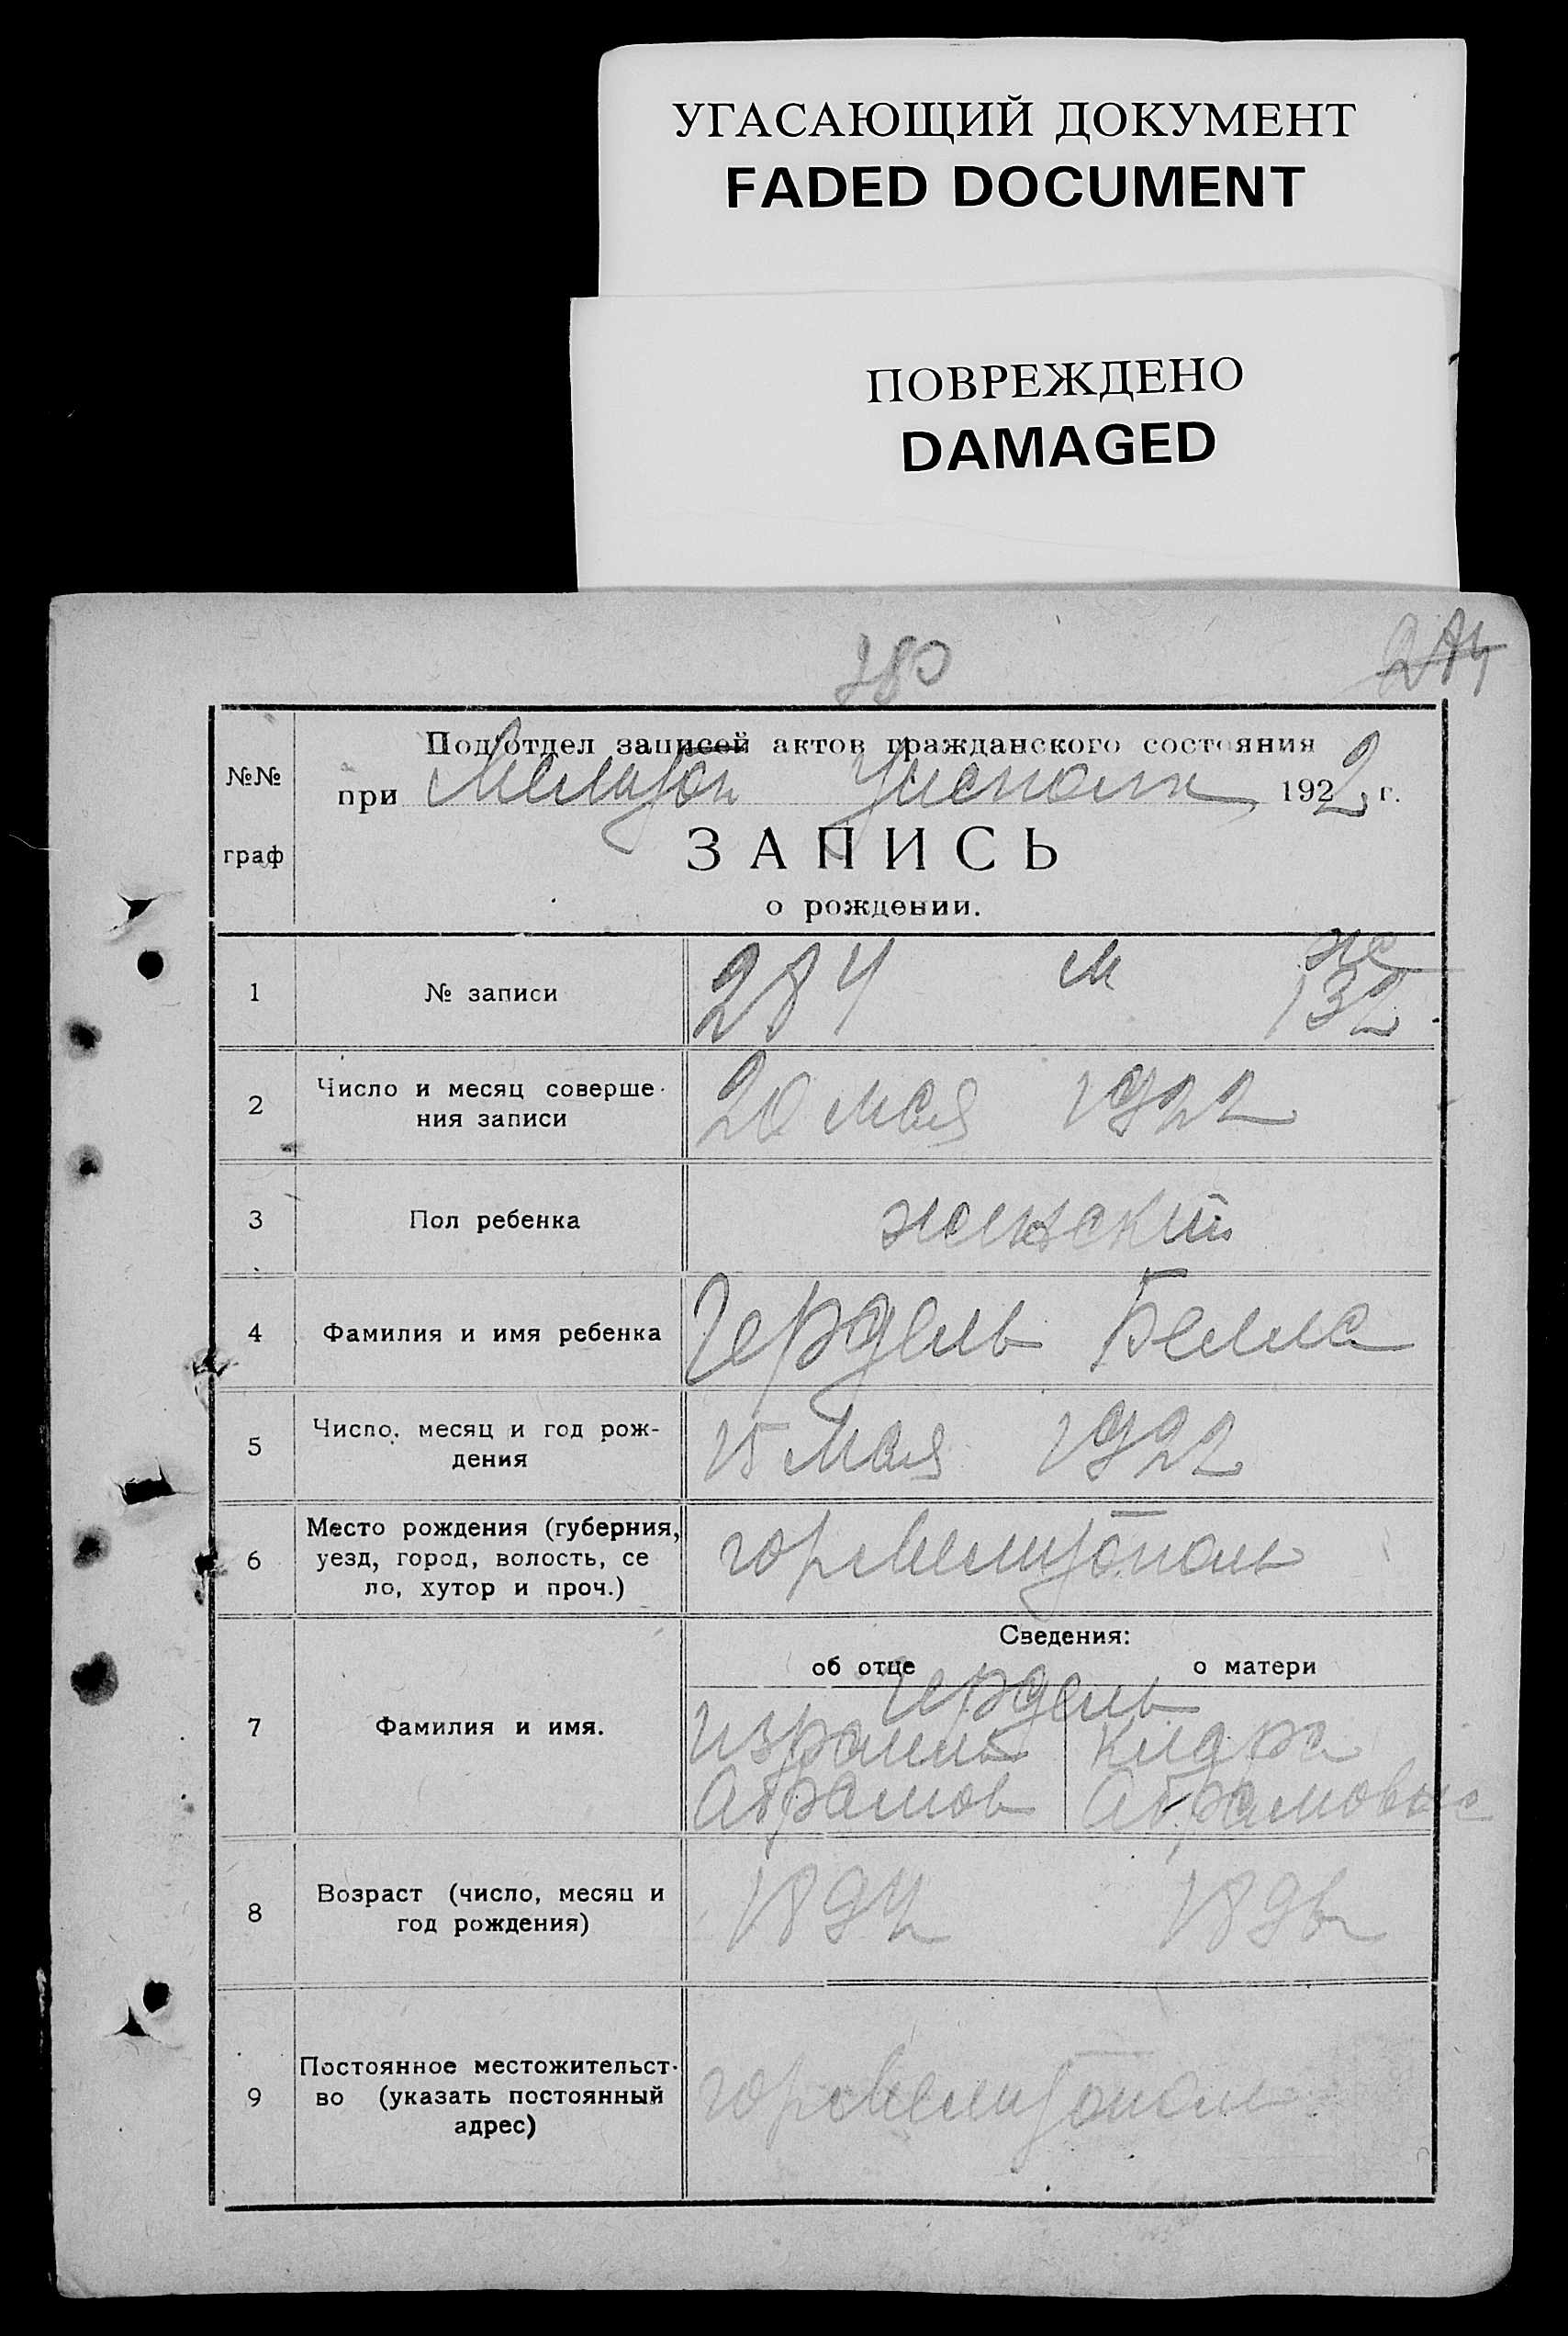 УГАСАЮЩИЙ ДОКУМЕНТ
FADED DOCUMENT
ПОВРЕЖДЕНО
DAMAGED
284
№№
граф
Под'отдел записей актов гражданского состояния
при Мелитоп Уисполк 1922 г.
ЗАПИСЬ
о рождении.
1 № записи 284 м же 132
2 Число и месяц соверше-
ния записи
20 мая 1922
3 Пол ребенка женский
4 Фамилия и имя ребенка Гердель Белла
5 Число, месяц и год рож-
дения
15 мая 1922
6 Место рождения (губерния,
уезд, город, волость, се
ло, хутор и проч.)
гор Мелитополь
Сведения:
об отце о матери
7 Фамилия и имя.
Гердель
Израиль Клара
Абрамов Абрамовна
8 Возраст (число, месяц и
год рождения)
1894 1896
9 Постоянное местожительст-
во (указать постоянный
адрес)
гор Мелитополь